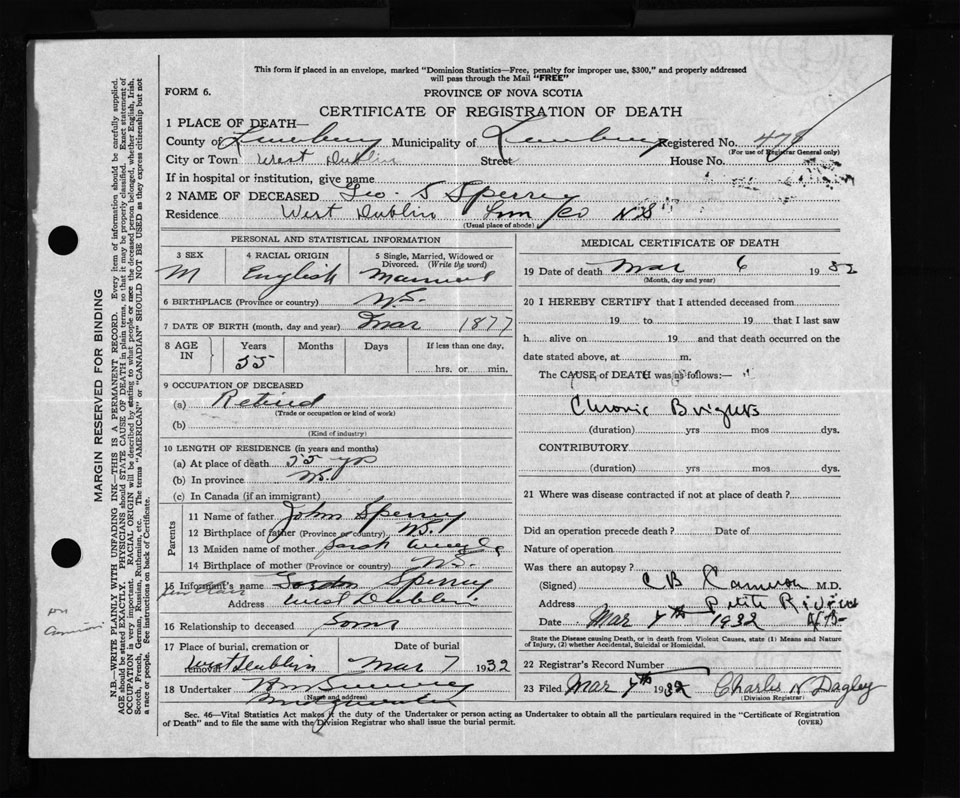 This form if placed in an envelope, marked "Dominion Statistics—Free, penalty for improper use, $300," and properly addressed
will pass through the Mail "FREE"
FORM 6.
PROVINCE OF NOVA SCOTIA
CERTIFICATE OF REGISTRATION OF DEATH
1 PLACE OF DEATH—
County of Lunenburg Municipality of Lunenburg Registered No. 478
(For use of Registrar General only)
City or Town West Dublin Street House No.
If in hospital or institution, give name
2 NAME OF DECEASED Geo. S Sperrey
Residence West Dublin Lun Co N.S
(Usual place of abode)
PERSONAL AND STATISTICAL INFORMATION
3 SEX
M
4 RACIAL ORIGIN
English
5 Single, Married, Widowed or
Divorced. (Write the word)
Married
6 BIRTHPLACE (Province or country) N.S.
7 DATE OF BIRTH (month, day and year) Mar 1877
8 AGE IN
Years Months Days If less than one day.
55 hrs. or min.
9 OCCUPATION OF DECEASED
(a) Retired
(Trade or occupation or kind of work)
(b)
(Kind of industry)
10 LENGTH OF RESIDENCE (in years and months)
(a) At place of death 55 yrs
(b) In province N.S.
(c) In Canada (if an immigrant)
Parents
11 Name of father John Sperrey
12 Birthplace of father (Province or country) N.S.
13 Maiden name of mother Sarah
14 Birthplace of mother (Province or country) N.S.
15 Informant's name Gordon Sperrey
Address West Dublin
16 Relationship to deceased Son
17 Place of burial, cremation or removal Date of burial
West Dublin Mar 7 1932
18 Undertaker
(Name and address)
Bridgewater
MEDICAL CERTIFICATE OF DEATH
19 Date of death Mar 6 1932
(Month, day and year)
20 I HEREBY CERTIFY that I attended deceased from
19 to 19 that I last saw
h alive on 19 and that death occurred on the
date stated above, at m.
The CAUSE of DEATH was as follows:—
Chronic Brights
(duration) yrs mos dys.
CONTRIBUTORY
(duration) yrs mos dys.
21 Where was disease contracted if not at place of death?
Did an operation precede death? Date of
Nature of operation
Was there an autopsy?
(Signed) C B Cameron M.D.
Address Petite Riviere
Date Mar 7th 1932
State the Disease causing Death, or in death from Violent Causes, state (1) Means and Nature
of Injury, (2) whether Accidental, Suicidal or Homicidal.
22 Registrar's Record Number
23 Filed Mar 7th 1932 Charles N Dagley
(Division Registrar)
Sec. 46—Vital Statistics Act makes it the duty of the Undertaker or person acting as Undertaker to obtain all the particulars required in the "Certificate of Registration
of Death" and to file the same with the Division Registrar who shall issue the burial permit.
(OVER)
MARGIN RESERVED FOR BINDING
N.B.—WRITE PLAINLY WITH UNFADING INK—THIS IS A PERMANENT RECORD. Every item of information should be carefully supplied.
AGE should be stated EXACTLY. PHYSICIANS should STATE CAUSE OF DEATH in plain terms, so that it may be properly classified. Exact statement of
OCCUPATION is very important. RACIAL ORIGIN will be described by stating to what people or race the deceased person belonged, whether English, Irish,
Scotch, French, German, Russian, Ruthenian, etc. The terms "AMERICAN" or "CANADIAN" SHOULD NOT BE USED as they express citizenship but not
a race or people. See instructions on back of Certificate.